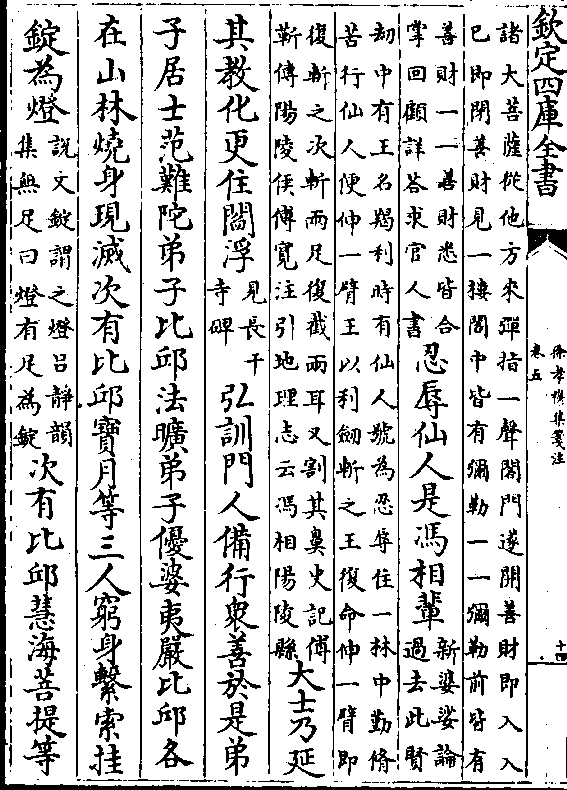 欽定四庫全書
徐孝穆集箋注
卷五
十四
諸大菩薩從他方來彈指一聲閣門遂開善財即入入
已即閉善財見一樓閣中皆有彌勒一一彌勒前皆有
善財一一善財悉皆合
掌回顧詳荅求官人書
忍辱仙人是馮相輩
新婆娑論
過去此賢
劫中有王名羯利時有仙人號為忍辱住一林中勤脩
苦行仙人便伸一臂王以利劒斬之王復命伸一臂即
復斬之次斬兩足復截兩耳又割其鼻史記傅
靳傅陽陵侯傅寛注引地理志云馮相陽陵縣
大士乃延
其教化更住閻浮
見長干
寺碑
弘訓門人備行衆善於是弟
子居士范難陀弟子比邱法曠弟子優婆夷嚴比邱各
在山林燒身現滅次有比邱寶月等三人窮身繫索挂
錠為燈
說文錠謂之燈吕靜韻
集無足曰燈有足為錠
次有比邱慧海菩提等